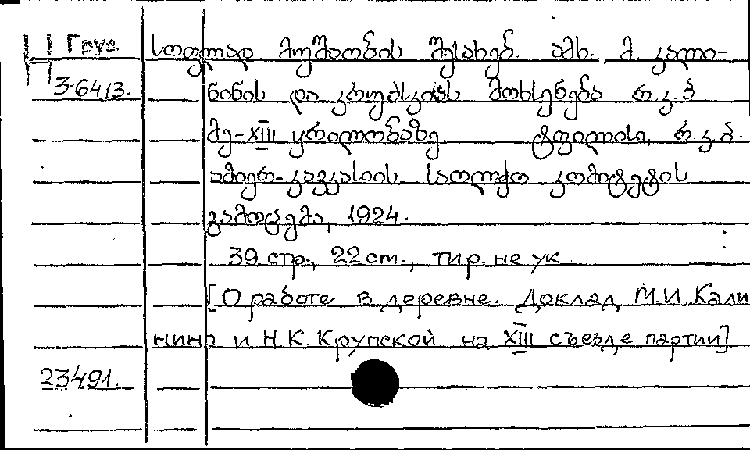 Груз. სოფლად მუშაობის შესახებ. ამხ. მ. კალი-
3-6413. ნინის და კრუპსკაიას მოხსენება რ.კ.პ
მე-XIII ყრილობაზე ტფილისი, რ.კ.პ.
ამიერ-კავკასიის საოლქო კომიტეტის
გამოცემა, 1924.
39 стр., 22 cm., тир. не ук
[О работе в деревне. Доклад М.И. Кали
нина и Н.К. Крупской на XIII съезде партии]
23491.